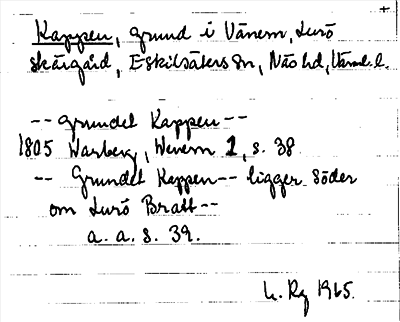 +
Kappen, grund i Vänern, Lurö
skärgård, Eskilsäters sn, Näs hd, Värml. l.
-- grundet Kappen --
1805 Warberg, Wenern 1, s. 38
-- Grundet Kappen -- ligger Söder
om Lurö Bratt --
a. a. s. 39.
1965.